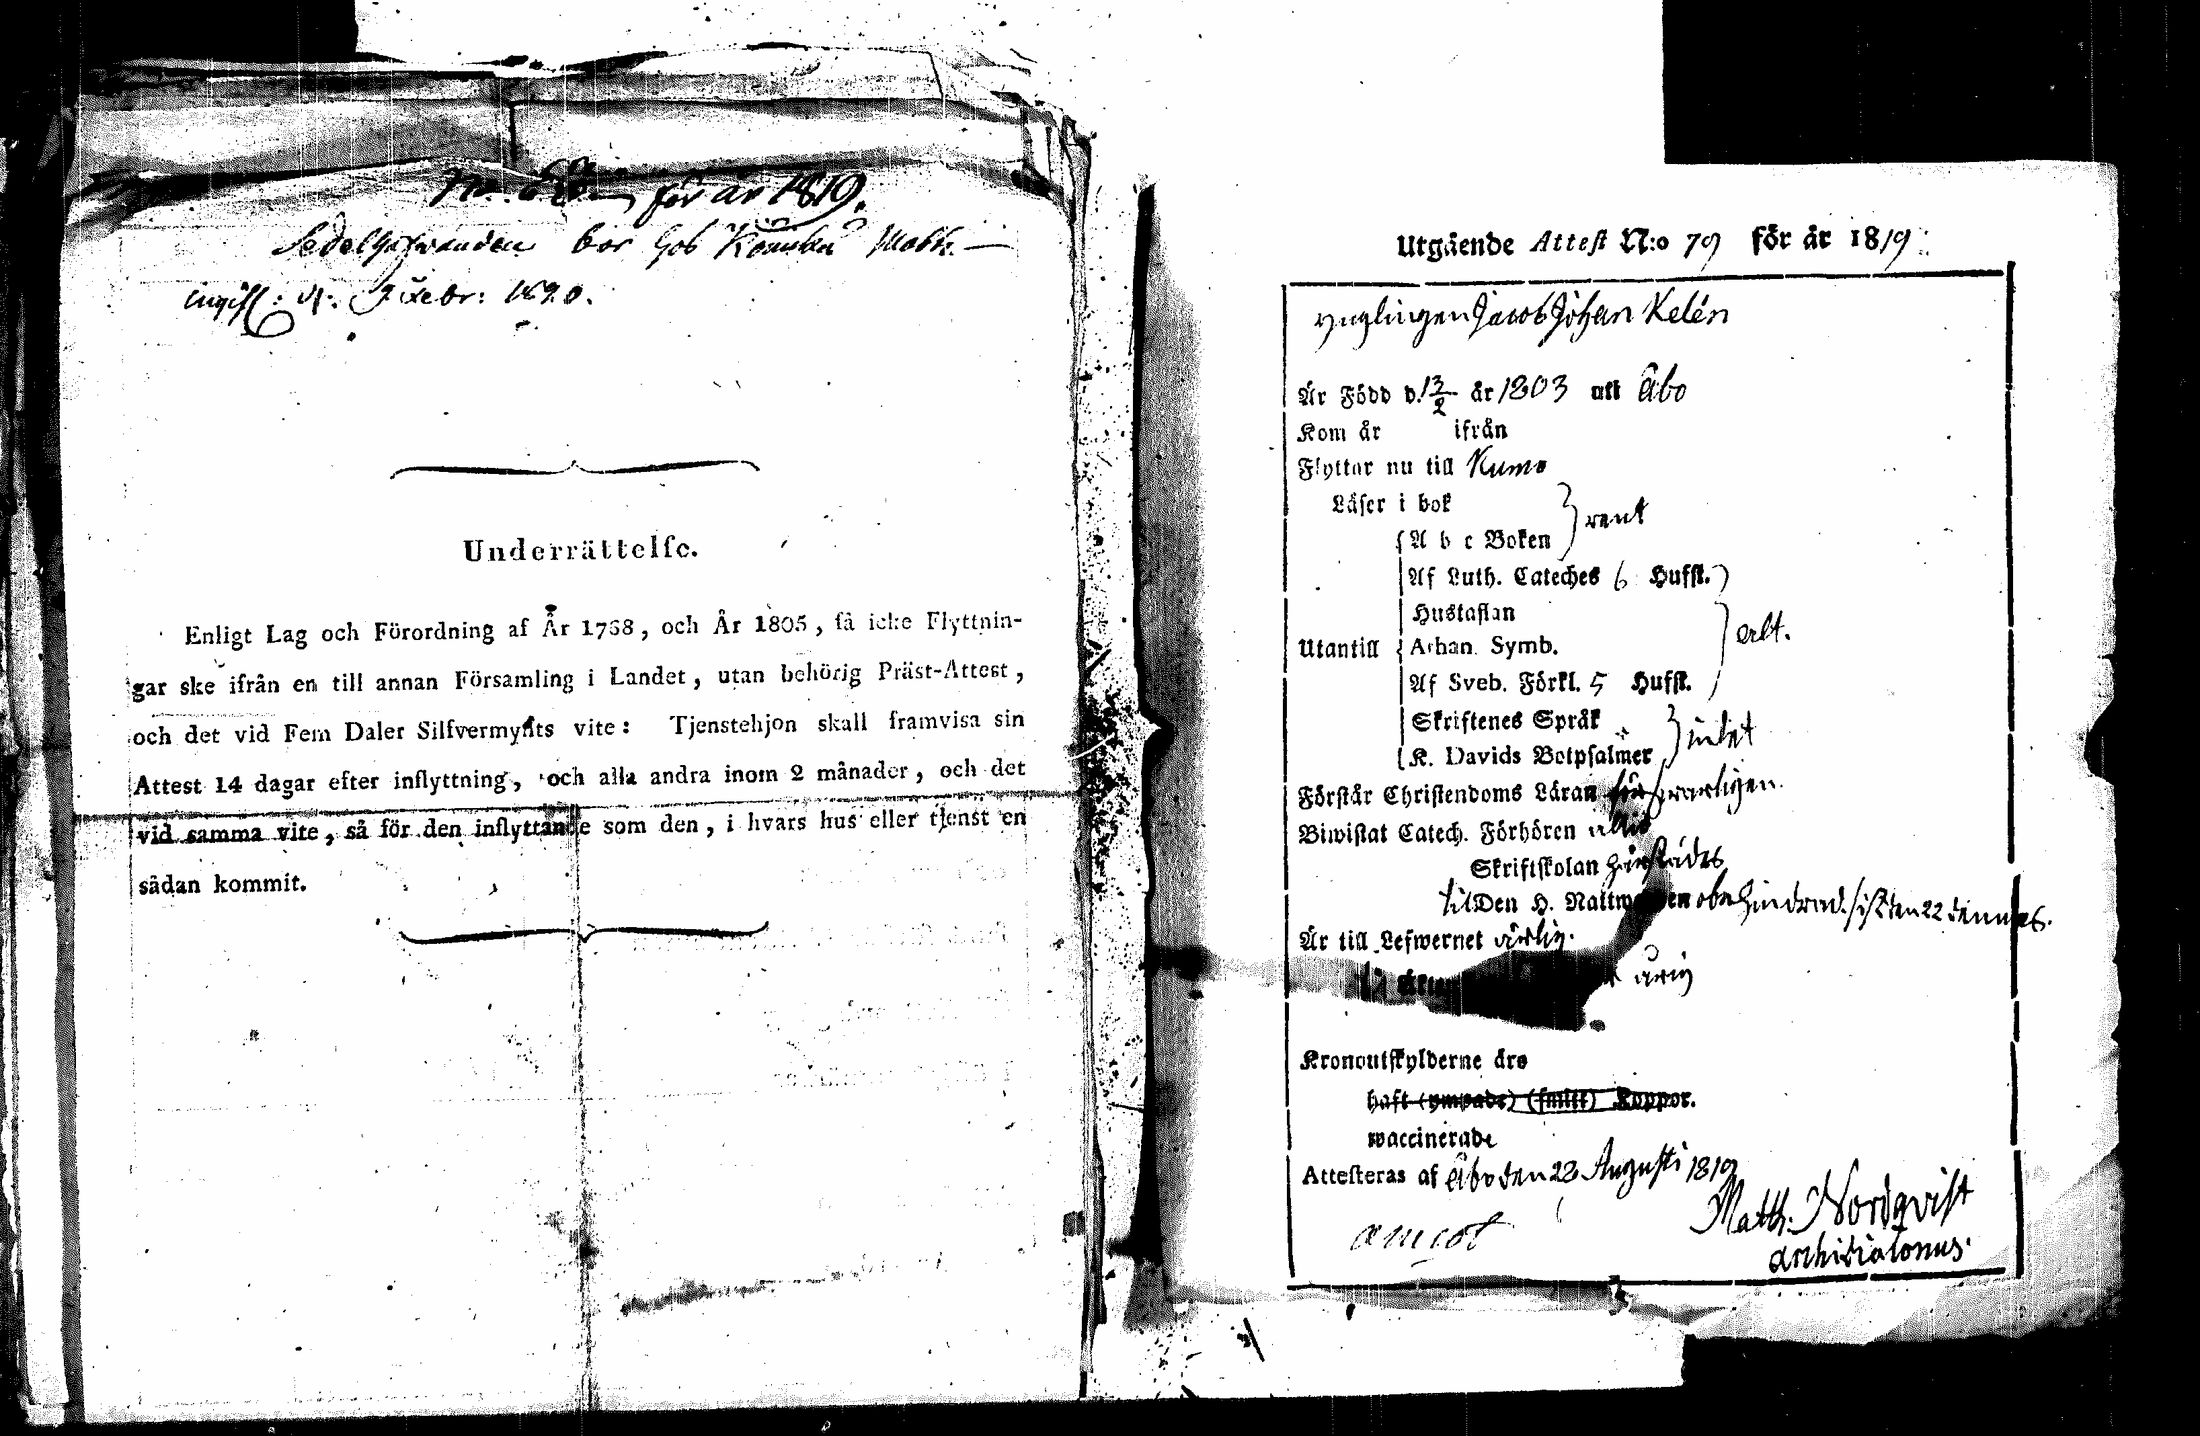 för år 1819.
Sedelhafwanden bor hos
d. 9 Febr: 1820.
Underrättelse.
Enligt Lag och Förordning af År 1768, och År 1805, få icke Flyttnin-
gar ske ifrån en till annan Församling i Landet, utan behörig Präst-Attest,
och det vid Fem Daler Silfvermynts vite: Tjenstehjon skall framvisa sin
Attest 14 dagar efter inflyttning, och alla andra inom 2 månader, och det
vid samma vite, så för den inflyttande som den, i hvars hus eller tjenst en
sådan kommit.
Utgående Attest N:o 79 för år 1819.
ynglingen Jacob Johan Kelén
Är Född d. 13/2 år 1803 uti Åbo
Kom år ifrån
Flyttar nu till Kumo
Läser i bok
A b c Boken } rent
Af Luth. Cateches 6 Hufst.
Hustaflan
Utantill Athan. Symb.
Af Sveb. Förkl. 5 Hufst.
Skriftenes Språk
K. Davids Botpsalmer } intet
Förstår Christendoms Läran förswarligen.
Biwistat Catech. Förhören
Skriftskolan härstädes
till Den H. Nattwarden obehindrad, sist den 22 dennes.
Är till Lefwernet ärlig.
Kronoutskylderne äro
haft (ympade) (smitt) Koppor.
waccinerade
Attesteras af Åbo den 23 Augusti 1819
Matth: Nordqvist
archidiaconus.